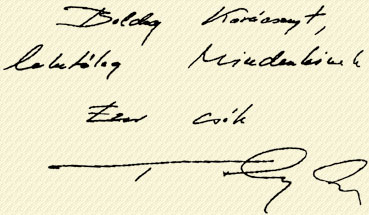 Boldog Karácsonyt,
lehetőleg Mindenkinek
Ezer csók